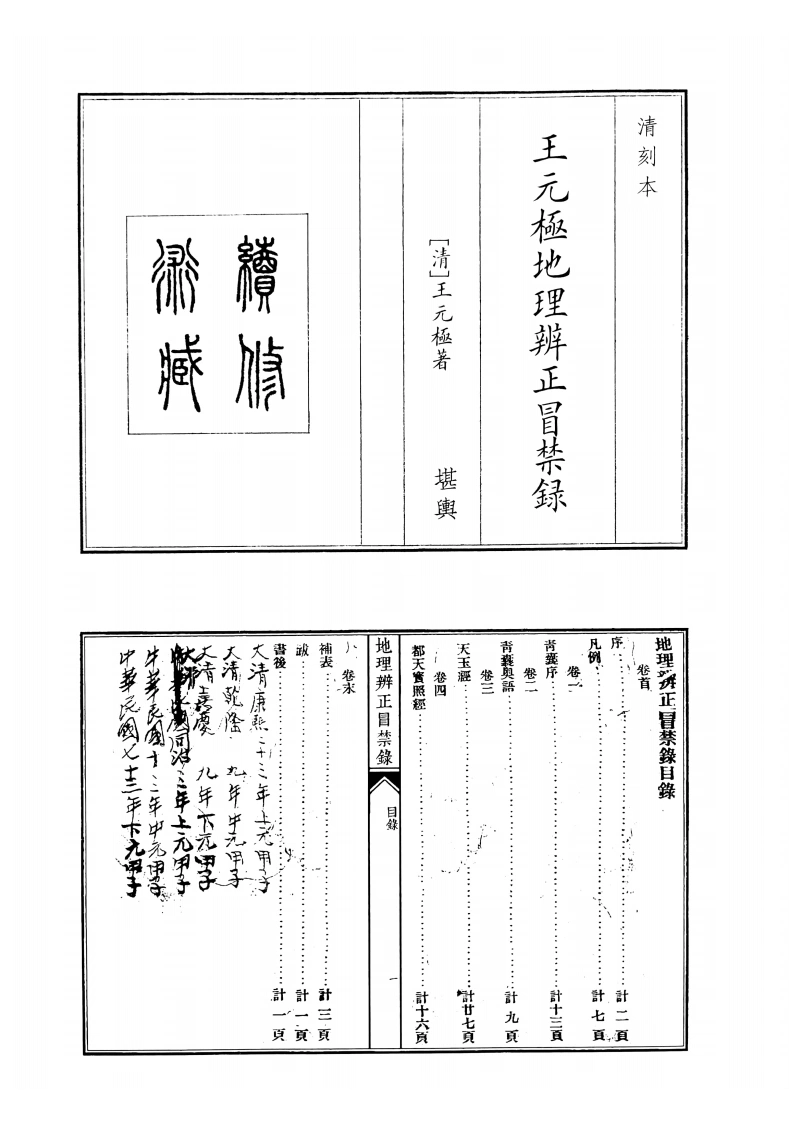 清刻本
王元極地理辨正冒禁録
[清]王元極著
堪輿
續修
術藏
地理辨正冒禁錄目錄
卷首
序……計二頁
凡例……計七頁
卷一
青囊序……計十三頁
卷二
青囊奧語……計九頁
卷三
天玉經……計廿七頁
卷四
都天寶照經……計十六頁
地理辨正冒禁錄
目錄
一
卷末
補表……計三頁
跋……計一頁
書後……計一頁
大清康熙二十三年上元甲子
大清乾隆 九年中元甲子
大清嘉慶 九年下元甲子
同治三年上元甲子
中華民國十三年中元甲子
中華民國七十三年下元甲子